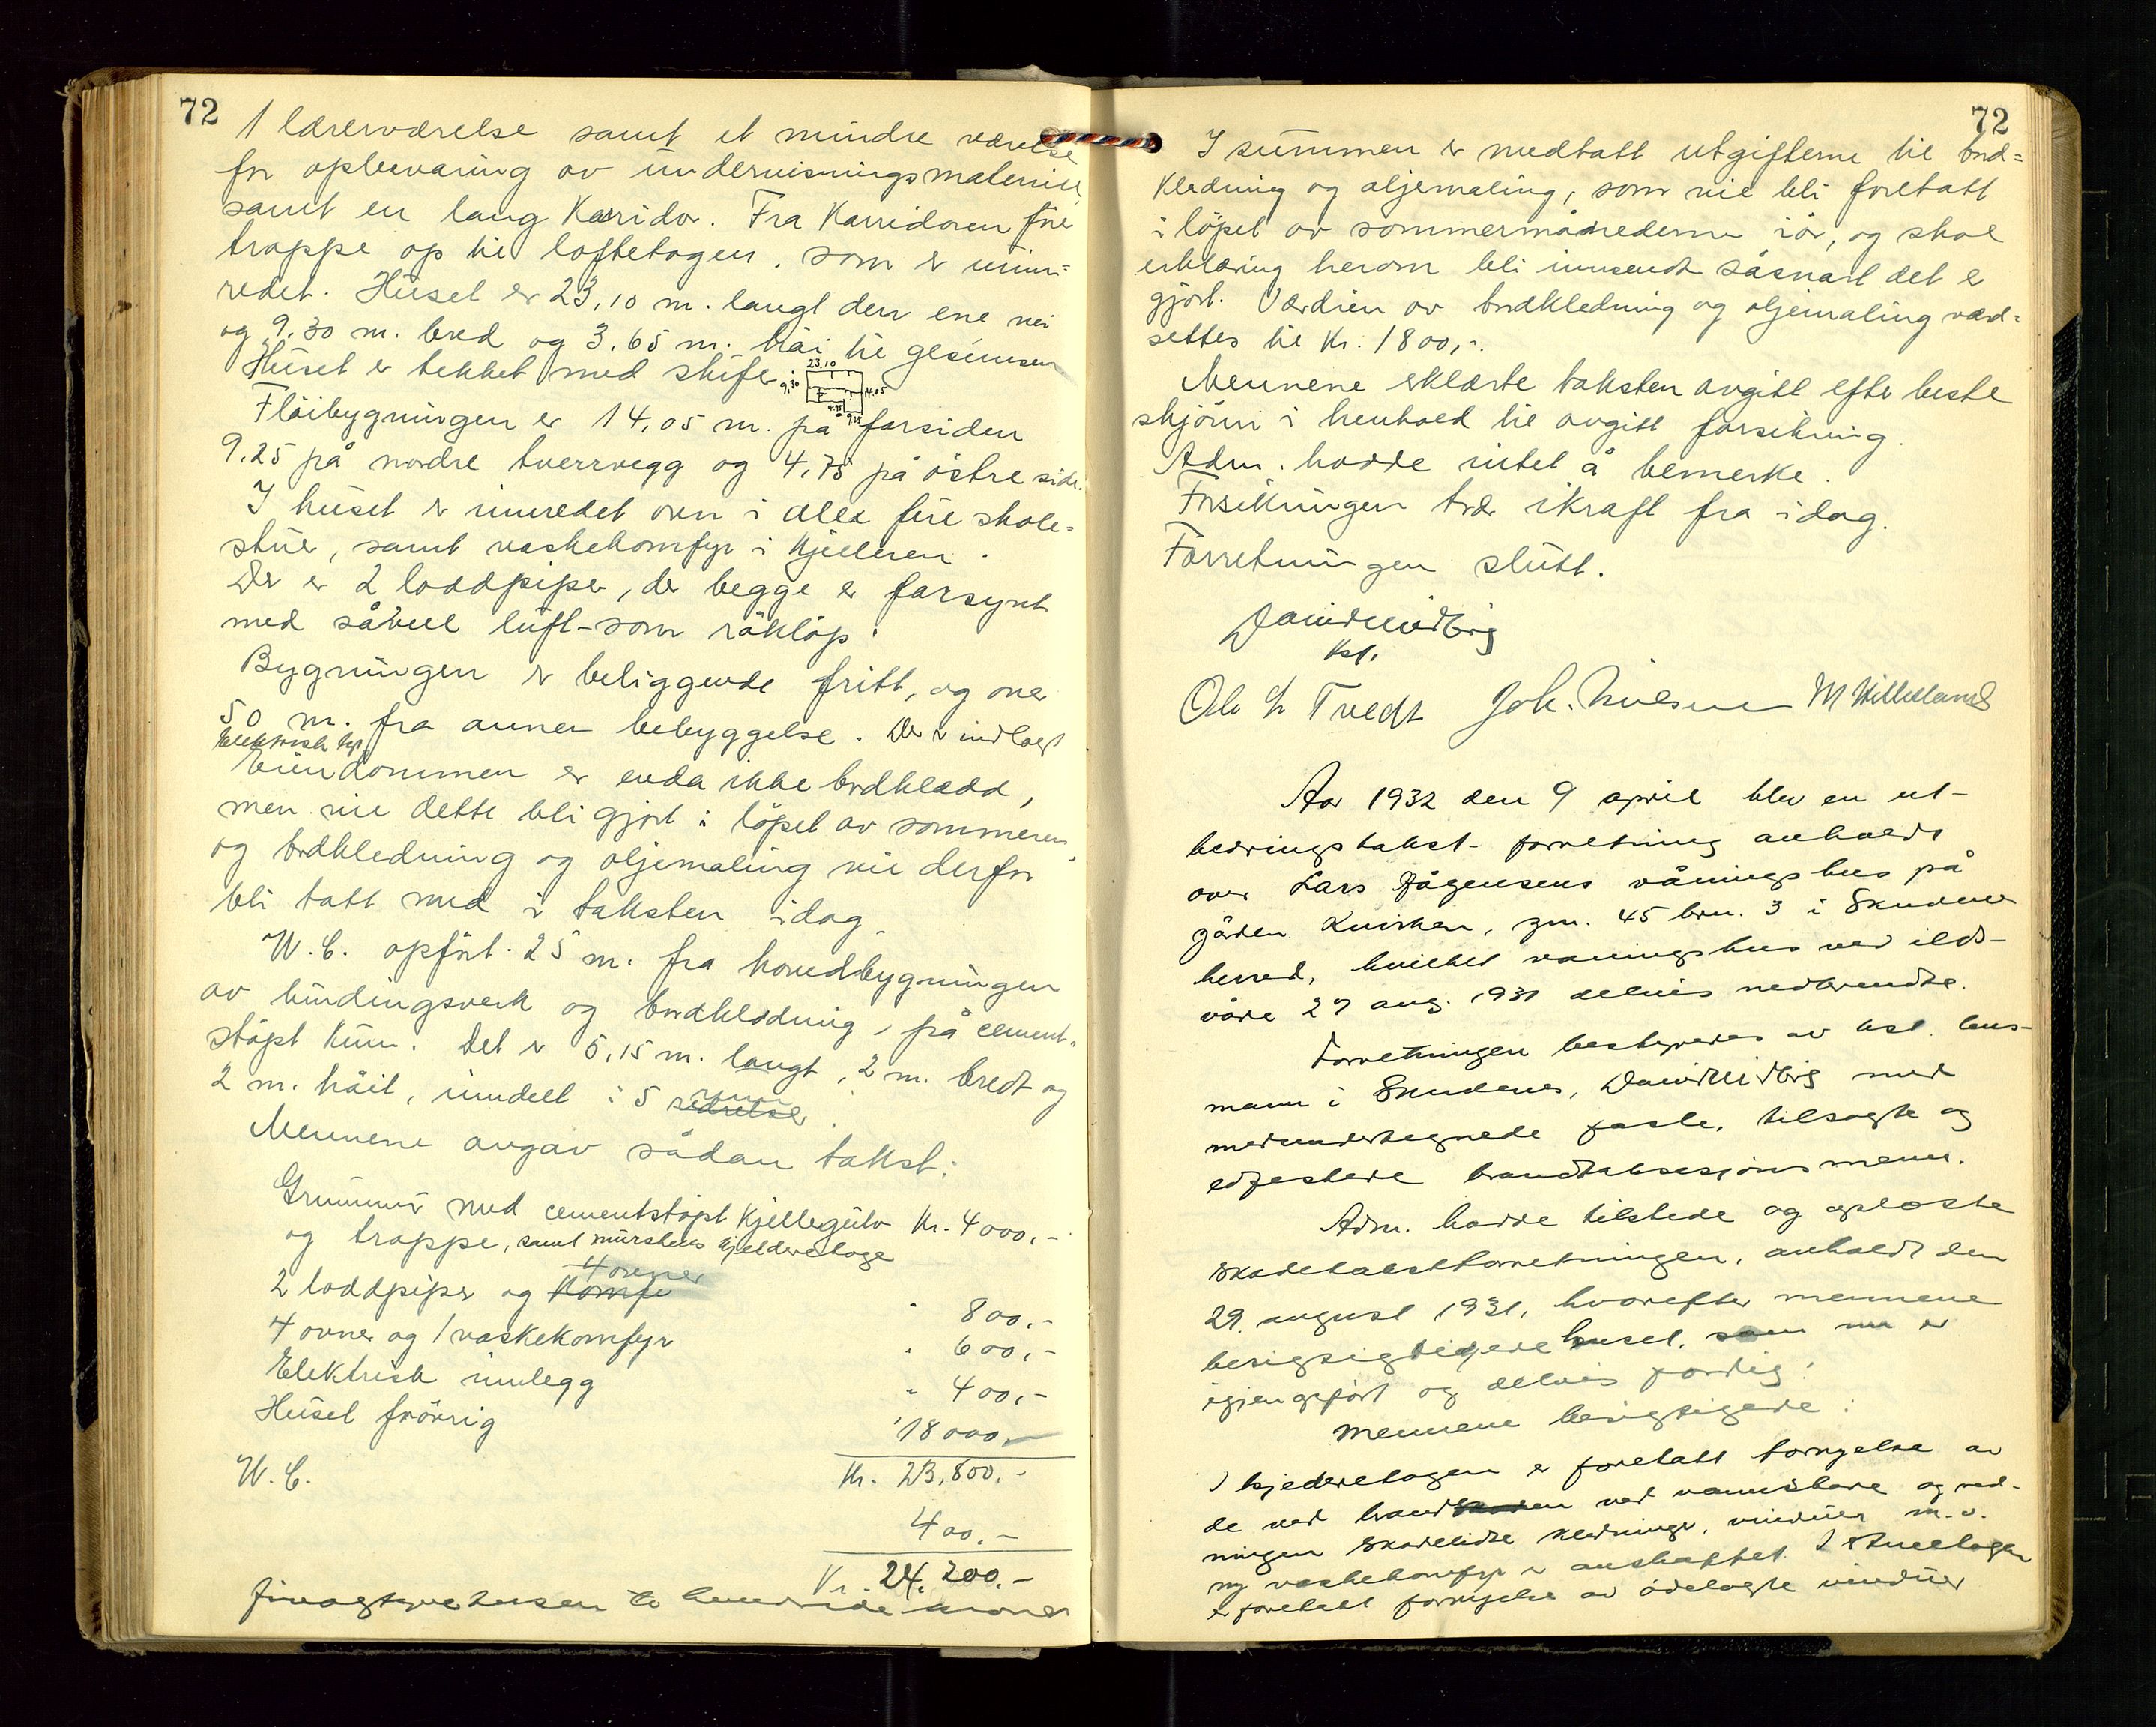 72
1 lærerværelse samt et mindre værelse
for opbevaring av undervisningsmateriell
samt en lang Korridor. Fra Korridoren före
trappe op til loftetagen, som er uinn-
redet. Huset er 23,10 m. langt den ene vei
og 9,30 m. bred og 3,65 m. höi til gesimsen
Huset er tekket med skifer.
23,10
9,30
14,05
4,75
9,25
Flöibygningen er 14,05 m. på forsiden
9,25 på nordre tverrvegg og 4,75 på östre side.
I huset er innredet ovn i alle fire skole-
stuer, samt vaskekomfyr i Kjelleren.
Der er 2 loddpiper, der begge er forsynt
med såvel luft- som röklöp.
Bygningen er beliggende fritt, og over
50 m. fra annen bebyggelse. Der er indlagt
Elektrisk lys
Eiendommen er enda ikke bordkledd,
men vil dette bli gjort i löpet av sommeren,
og bordkledning og oljemaling vil derfor
bli tatt med i taksten idag.
W.C. opfört 25 m. fra hovedbygningen
av bindingsverk og bordkledning, på cement-
stöpt Kum. Det er 5,15 m. langt, 2 m. bredt og
2 m. höit, inndelt i 5 rum
Mennene avgav sådan takst:
Grunnmur med cementstöpt Kjellergulv Kr. 4000,-
og trappe, samt murstens kjelderetage
4 ovner
2 loddpiper og Komfr " 800,-
4 ovner og 1 vaskekomfyr " 600,-
Elektrisk innlegg " 400,-
Huset forövrig " 18000,-
Kr. 23,800,-
W.C. 400,-
Kr. 24,200,-
firogtyvetusen to hundrede kroner
72
I summen er medtatt utgifterne til bord-
kledning og oljemaling, som vil bli foretatt
i löpet av sommermånederne iår, og skal
erklæring herom bli innsendt såsnart det er
gjort. Værdien av bordkledning og oljemaling verd-
settes til Kr. 1800,-.
Mennene erklærte taksten avgitt efter beste
skjönn i henhold til avgitt forsikring.
Adm. hadde intet å bemerke.
Forsikringen trær ikraft fra idag.
Forretningen slutt.
David Widbrg
Kst.
Ole L Tvedt Joh. Nilsen M Hilleland
Aar 1932 den 9 april blev en ut-
bedringstakst-forretning avholdt
over Lars Jögensens våningshus på
gården Kvirken, gnr. 45 brn. 3 i Skudenes
herred, hvilket vaningshus ved ilds-
våde 27 aug. 1931 delvis nedbrendte.
Forretningen bestyredes av kst. lens-
mann i Skudenes, David Widbrg med
medundertegnede faste, tilsagte og
edfestede brandtaksasjonsmenn.
Adm. hadde tilstede og oplæste
skadetakstforretningen, avholdt den
29. august 1931, hvorefter mennene
besigsigtigede huset, som nu er
igjenopfört og delvis ferdig.
Mennene besigtigede:
I kjelderetagen er foretatt fornyelse av
de ved brand ved vannskade og red-
ningen skadelidte kledninger, vinduer m.v.
ny vaskekomfyr er anskaffet. I 1ste etagen
er foretatt fornyelse av ödelagte vinduer